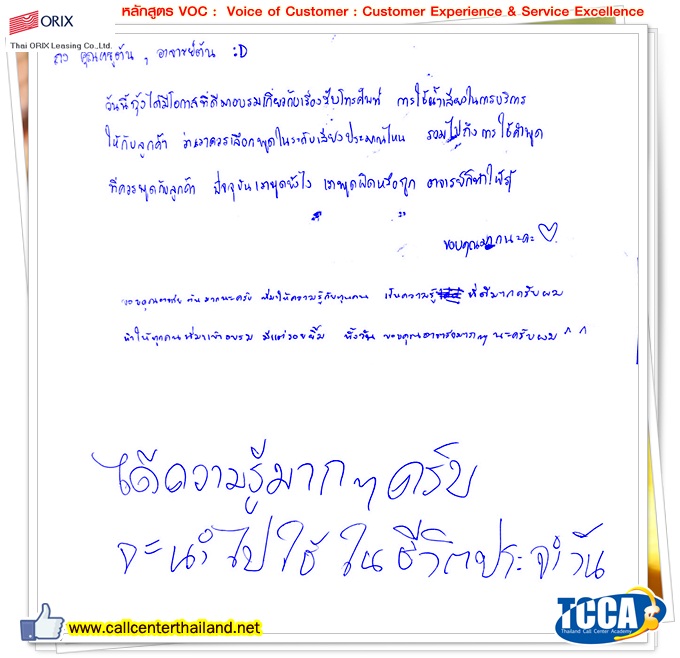 หลักสูตร VOC : Voice of Customer : Customer Experience & Service Excellence
ORIX
Thai ORIX Leasing Co.,Ltd.
คุณครูต้น , อาจารย์ต้น :D
วันนี้กุ้งได้มีโอกาสที่ดีมาอบรมเกี่ยวกับเรื่องรับโทรศัพท์ การใช้น้ำเสียงในการบริการ
ให้กับลูกค้า ว่าเราควรเลือกพูดในระดับเสียงประมาณไหน รวมไปถึงการใช้คำพูด
ที่ควรพูดกับลูกค้า ปัจจุบันเราพูดยังไง เราพูดผิดหรือถูก อาจารย์ก็ทำให้รู้
ขอบคุณมากนะคะ ♡
ขอบคุณอาจารย์ ต้น มากนะครับ ที่มาให้ความรู้กับทุกคน เป็นความรู้ ที่ดีมากครับผม
ทำให้ทุกคนที่มาเข้าอบรม มีแต่รอยยิ้ม ทั้งวัน ขอบคุณอาจารย์มากๆ นะครับผม ^ ^
ได้ความรู้มากๆ ครับ
จะนำไปใช้ในชีวิตประจำวัน
www.callcenterthailand.net
TCCA
Thailand Call Center Academy